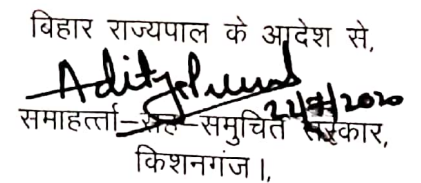 बिहार राज्यपाल के आदेश से,
22/7/2020
समाहर्त्ता–सह–समुचित सरकार,
किशनगंज।,